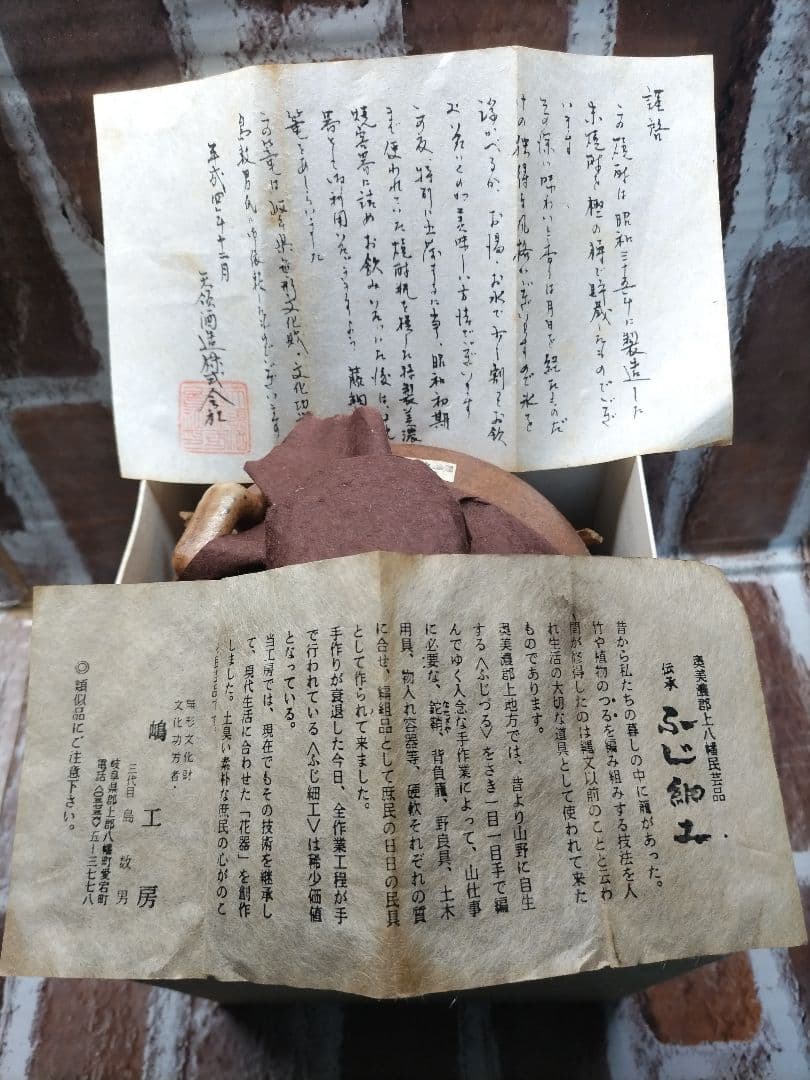 謹啓
この焼酎は昭和三十五年に製造した
米焼酎を樫の樽で貯蔵したものでござ
います
その深い味わいと香りは月日を経たものだ
けの独特な風格がございますので氷を
浮かべるか、お湯、お水で少し割ってお飲
みいただくのが美味しい方法でございます
この度、特別に出荷するに当り、昭和初期
まで使われていた焼酎瓶を模した特製美濃
焼容器に詰め、お飲みいただいた後は、花
器としても御利用いただきますよう、藤細
篭をあしらいました
この篭は岐阜県無形文化財・文化功
島数男氏の
平成四年十二月
天領酒造株式会社
奥美濃郡上八幡民芸品
伝承 ふじ細工
昔から私たちの暮しの中に籠があった。
竹や植物のつるを編み組みする技法を人
間が修得したのは縄文以前のことと云わ
れ生活の大切な道具として使われて来た
ものであります。
奥美濃郡上地方では、昔より山野に自生
する〈ふじづる〉をさき一目一目手で編
んでゆく入念な手作業によって、山仕事
に必要な、鉈鞘、背負籠、野良具、土木
用具、物入れ容器等、硬軟それぞれの質
に合せ、編組品として庶民の日日の民具
として作られて来ました。
手作りが衰退した今日、全作業工程が手
で行われている〈ふじ細工〉は稀少価値
となっている。
当工房では、現在でもその技術を継承し
て、現代生活に合わせた「花器」を創作
しました。土臭い素朴な庶民の心がのこ
無形文化財
文化功労者・
嶋工房
三代目 島数男
岐阜県郡上郡八幡町愛宕町
◎類似品にご注意下さい。